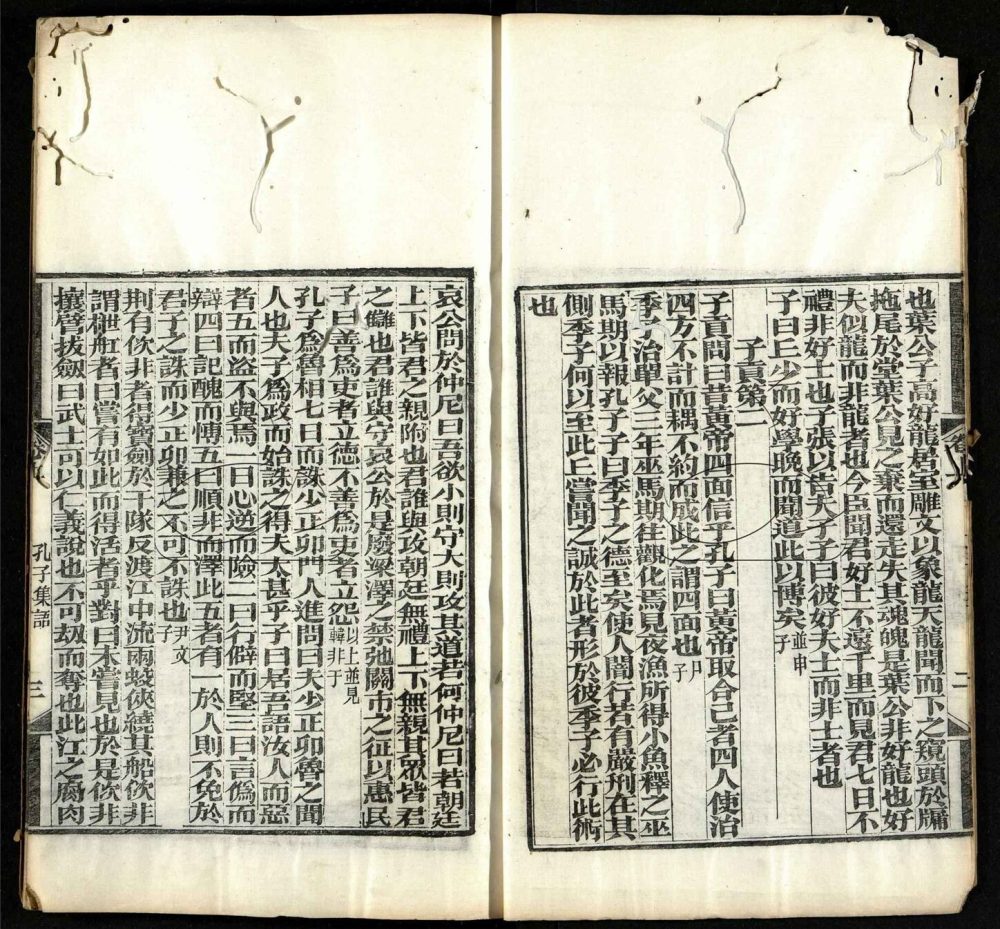 也葉公子高好龍居室雕文以象龍天龍聞而下之窺頭於牖
拖尾於堂葉公見之棄而還走失其魂魄是葉公非好龍也好
夫似龍而非龍者也今臣聞君好士不遠千里而見君七日不
禮非好士也子張以告夫子子曰彼好夫士而非士者也
子曰丘少而好學晚而聞道此以博矣並申子
子貢第二
子貢問曰昔黃帝四面信乎孔子曰黃帝取合己者四人使治
四方不計而耦不約而成此之謂四面也尸子
季子治單父三年巫馬期往觀化焉見夜漁所得小魚釋之巫
馬期以報孔子子曰季子之德至矣使人闇行若有嚴刑在其
側季子何以至此丘嘗聞之誠於此者形於彼季子必行此術
也
二
哀公問於仲尼曰吾欲小則守大則攻其道若何仲尼曰若朝廷
上下皆君之親附也君誰與攻朝廷無禮上下無親其眾皆君
之讎也君誰與守哀公於是廢梁澤之禁弛關市之征以惠民
子曰善為吏者立德不善為吏者立怨以上並見韓非子
孔子為魯相七日而誅少正卯門人進問曰夫少正卯魯之聞
人也夫子為政而始誅之得夫太甚乎子曰居吾語汝人而惡
者五而盜不與焉一曰心逆而險二曰行僻而堅三曰言偽而
辯四曰記醜而博五曰順非而澤此五者有一於人則不免於
君子之誅而少正卯兼之不可不誅也尹文子
荆有佽非者得寶劍於干隊反渡江中流兩蛟俠繞其船佽非
謂枻舡者曰嘗有如此而得活者乎對曰未嘗見也於是佽非
攘臂拔劔曰武士可以仁義說也不可刼而奪也此江之腐肉
孔子集語
三